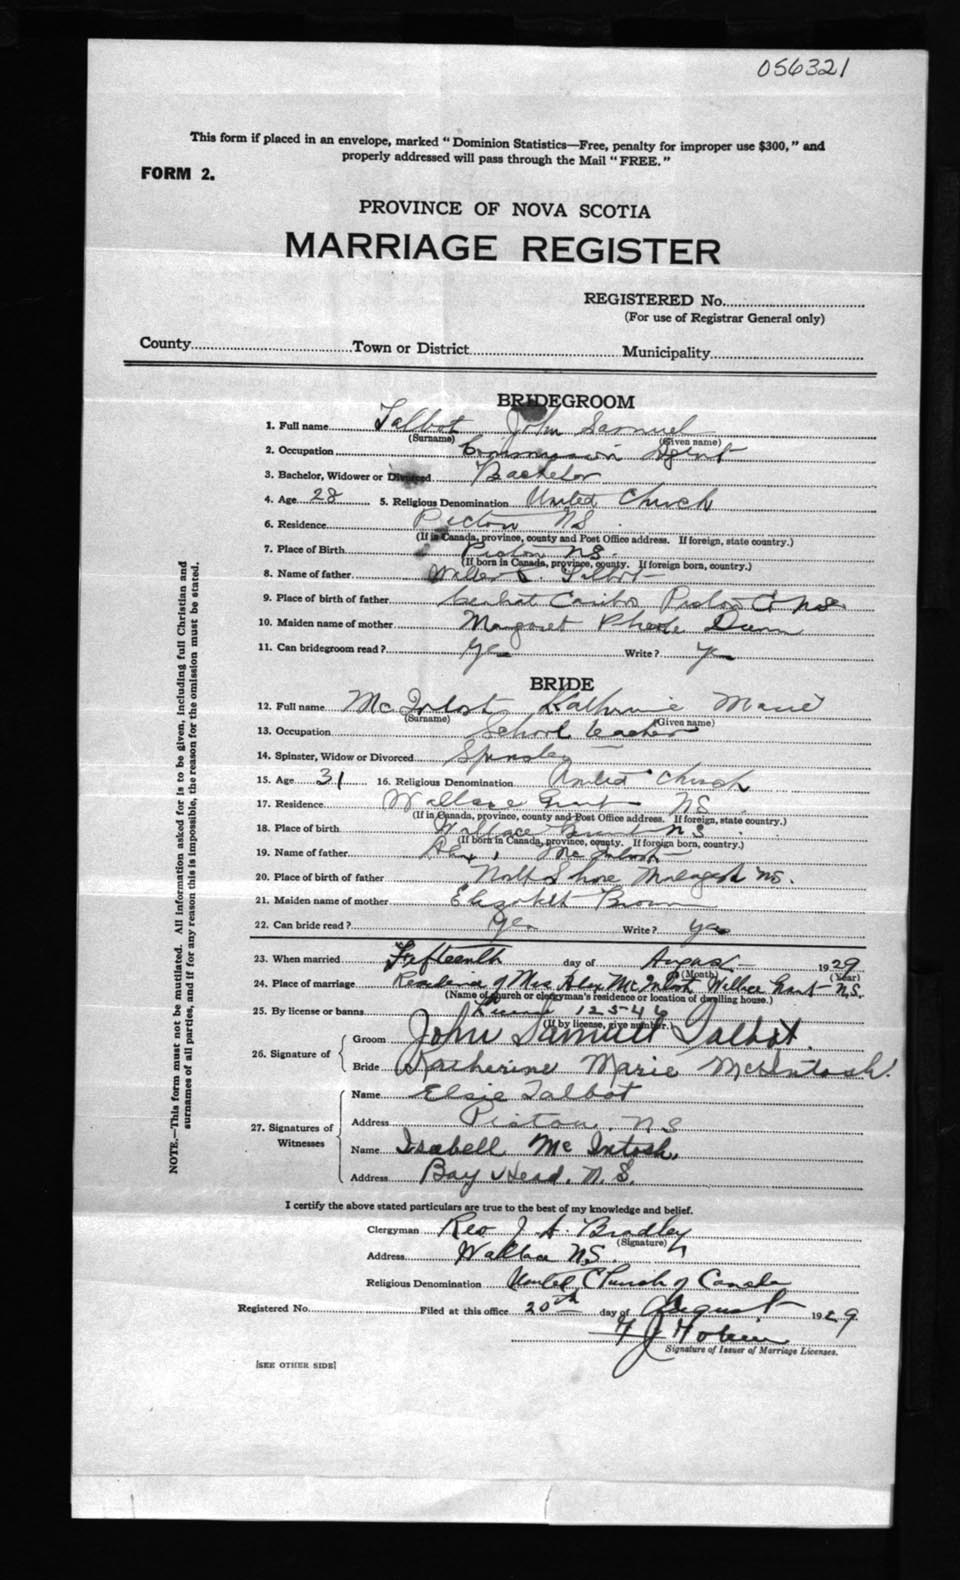 056321
This form if placed in an envelope, marked "Dominion Statistics—Free, penalty for improper use $300," and
properly addressed will pass through the Mail "FREE."
FORM 2.
PROVINCE OF NOVA SCOTIA
MARRIAGE REGISTER
REGISTERED No.
(For use of Registrar General only)
County Town or District Municipality
BRIDEGROOM
1. Full name Talbot John Samuel
(Surname) (Given name)
2. Occupation Commission Agent
3. Bachelor, Widower or Divorced Bachelor
4. Age 28 5. Religious Denomination United Church
6. Residence Pictou NS
(If in Canada, province, county and Post Office address. If foreign, state country.)
7. Place of Birth Pictou NS.
(If born in Canada, province, county. If foreign born, country.)
8. Name of father Talbot
9. Place of birth of father Central Caribou Pictou Co NS
10. Maiden name of mother Margaret Dunn
11. Can bridegroom read? Yes Write? Yes
BRIDE
12. Full name McIntosh Katherine Marie
(Surname) (Given name)
13. Occupation School teacher
14. Spinster, Widow or Divorced Spinster
15. Age 31 16. Religious Denomination United Church
17. Residence Wallace Grant NS
(If in Canada, province, county and Post Office address. If foreign, state country.)
18. Place of birth Wallace Grant NS
(If born in Canada, province, county. If foreign born, country.)
19. Name of father Alex, McIntosh
20. Place of birth of father North Shore Malagash NS.
21. Maiden name of mother Elizabeth Brown
22. Can bride read? Yes Write? Yes
23. When married Fifteenth day of August 1929
(Month) (Year)
24. Place of marriage Residence of Mrs Alex McIntosh Wallace Grant N.S.
(Name of church or clergyman's residence or location of dwelling house.)
25. By license or banns 12546
(If by license, give number.)
26. Signature of Groom John Samuel Talbot.
Bride Katherine Marie McIntosh
27. Signatures of Witnesses Name Elsie Talbot
Address Pictou, NS
Name Isabell McIntosh.
Address Bay Head. N.S.
I certify the above stated particulars are true to the best of my knowledge and belief.
Clergyman Rev J. A. Bradley
(Signature)
Address Wallace N.S.
Religious Denomination United Church of Canada
Registered No. Filed at this office 20th day of August 1929
Signature of Issuer of Marriage Licenses.
[SEE OTHER SIDE]
NOTE.—This form must not be mutilated. All information asked for is to be given, including full Christian and
surnames of all parties, and if for any reason this is impossible, the reason for the omission must be stated.